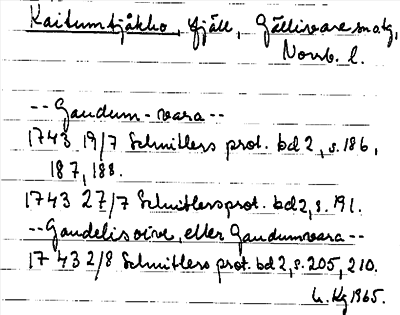 Kaitumtjåkko, fjäll, Gällivare snatg,
Norrb. l.
-- Gaudum-vara --
1743 19/7 Schnitlers prot. bd 2, s. 186,
187, 188.
1743 27/7 Schnitlers prot. bd 2, s. 191.
-- Gaudelisoive, eller Gaudumvara --
1743 2/8 Schnitlers prot. bd 2, s. 205, 210.
Kg 1965.